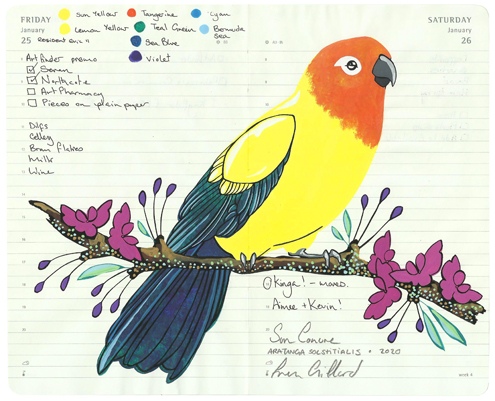 FRIDAY
January
25
Sun Yellow
Tangerine
Cyan
Lemon Yellow
Teal Green
Bermuda
Sea
Sea Blue
Violet
SATURDAY
January
26
Art finder promo
Seven
Northcote
Art Pharmacy
Pieces on plain paper
Dips
Celery
Bran flakes
Milk
Wine
Kinga! - moved.
Aimee + Kevin!
Sun Conure
ARATINGA SOLSTITIALIS • 2020
week 4